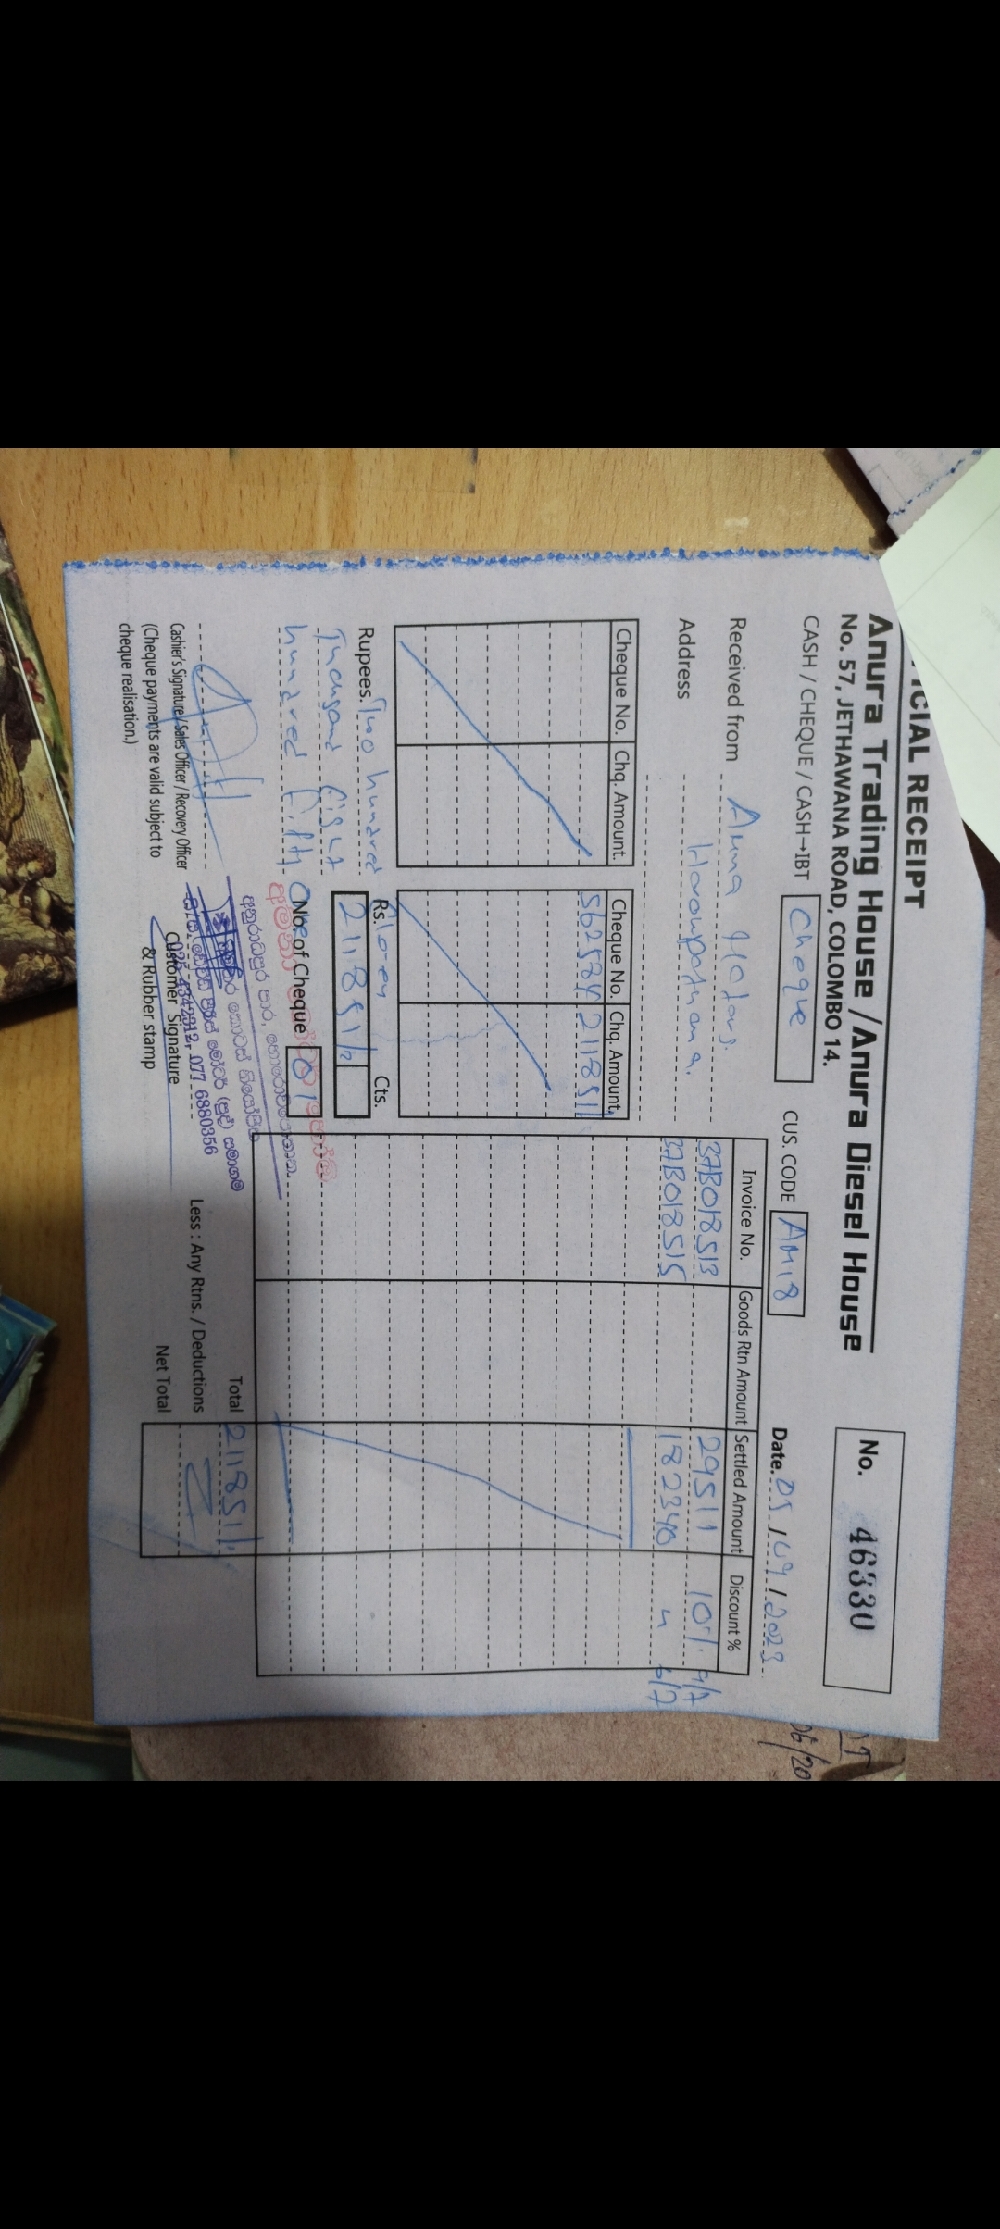 ICIAL RECEIPT
Anura Trading House / Anura Diesel House
No. 57, JETHAWANA ROAD, COLOMBO 14.
No. 46330
CASH / CHEQUE / CASH→IBT Cheque CUS. CODE AM18 Date. 05 / 09 / 2023
Received from Amma Motors.
Address Horowpatana.
Cheque No. Chq. Amount. Cheque No. Chq. Amount.
562584 211851/
Invoice No. Goods Rtn Amount Settled Amount Discount %
37B018513 29511 10%
37B018515 182340 "
Rupees. Two hundred Eleven
Thousand Eight
hundred Fifty One
Rs. Cts.
211851/=
No of Cheque 01
Total 211851/
Less : Any Rtns. / Deductions
Net Total
Cashier's Signature / Sales Officer / Recovery Officer
(Cheque payments are valid subject to
cheque realisation.)
025-4342812, 077 6880356
Customer Signature
& Rubber stamp
06/20